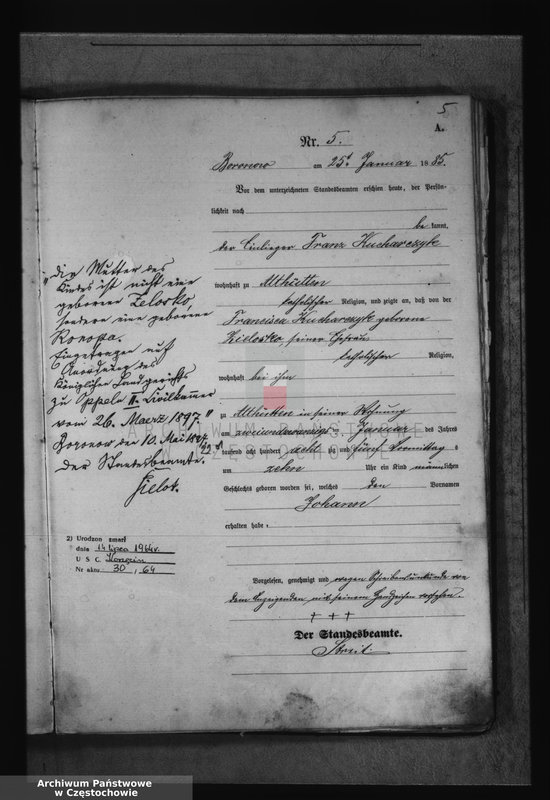 5
A.
Nr. 5.
Boronow am 25t Januar 1885.
Vor dem unterzeichneten Standesbeamten erschien heute, der Persön-
lichkeit nach
be kannt,
der Einlieger Franz Kucharczyk
wohnhaft zu Althütten
katholischer Religion, und zeigte an, daß von der
Francisca Kucharczyk geborene
Zielosko seiner Ehefrau
katholischer Religion,
wohnhaft bei ihm
zu Althütten in seiner Wohnung
am zweiundzwanzigs ten Januar des Jahres
tausend acht hundert acht zig und fünf Vormittag s
um zehn Uhr ein Kind männlichen
Geschlechts geboren worden sei, welches den Vornamen
Johann
erhalten habe.
Vorgelesen, genehmigt und wegen Schreibensunkunde von
dem Anzeigenden mit seinem Handzeichen versehen.
† † †
Der Standesbeamte.
Streit
"Die Mutter des
Kindes ist nicht eine
geborene Zelosko,
sondern eine geborene
Konopa.
Eingetragen auf
Anordnung des
Königlichen Landgerichts
zu Oppeln II. Civilkammer
vom 26. Maerz 1897."
Boronow den 10. Mai 1897
Der Standesbeamte.
Zielok.
2) Urodzon zmarł
data 14 lipca 1964r.
U S C
Nr aktu 30/64
ARCHIWUM PAŃSTWOWE
W CZĘSTOCHOWIE
Archiwum Państwowe
w Częstochowie